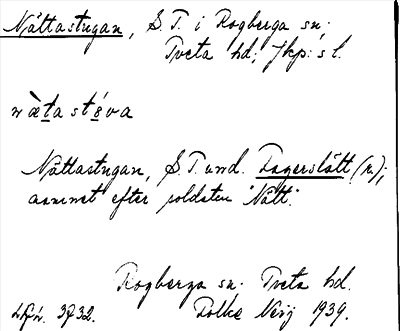 Nättastugan, S.T. i Rogberga sn.
Tveta hd; Jkp:s l.
nὰtastɛ́va
Nättastugan, S.T. und. Fagerslätt (n);
namnet efter soldaten "Nätt".
Rogberga sn. Tveta hd.
3732. Folke Neij 1939.